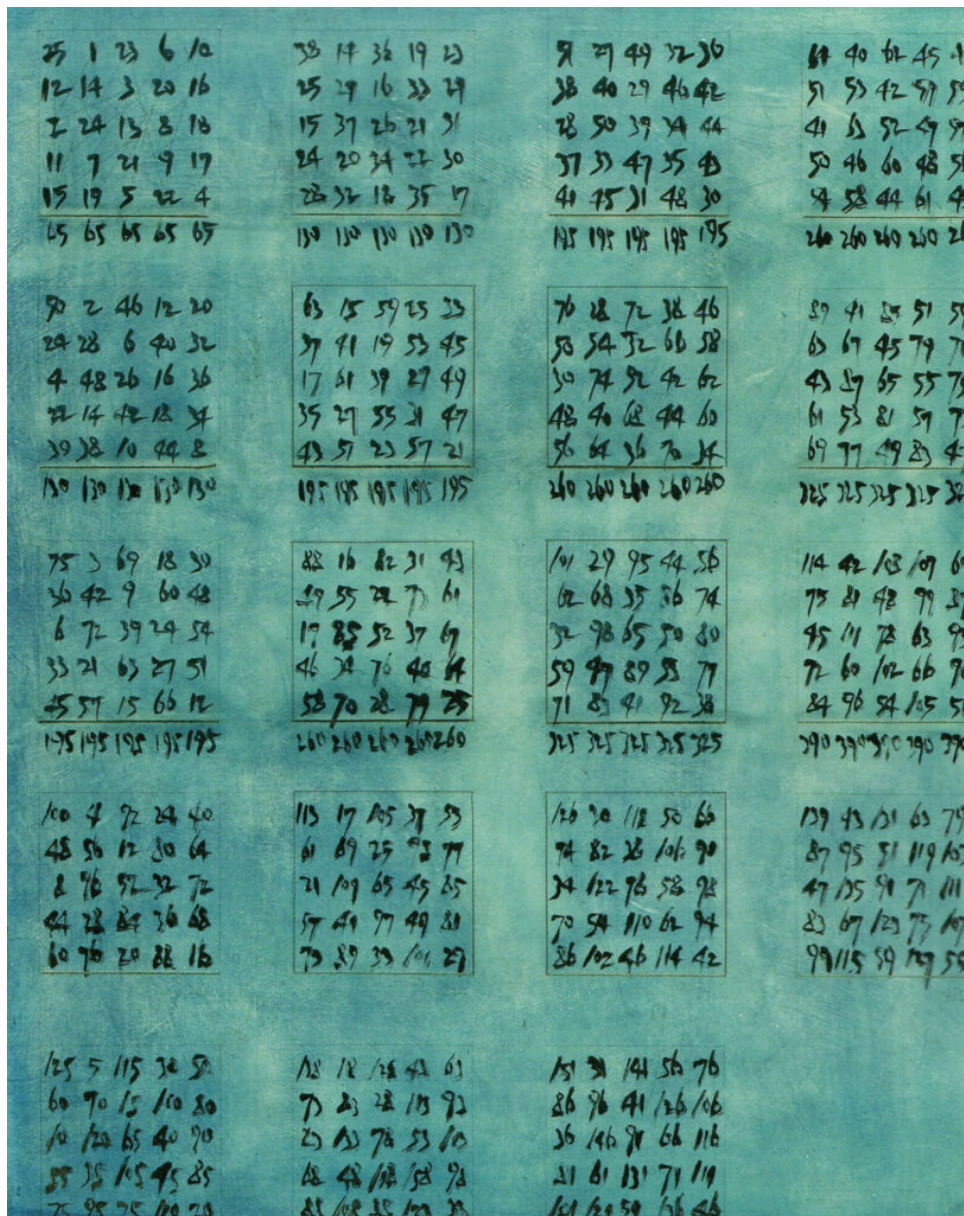 25 1 23 6 10
12 14 3 20 16
2 24 13 8 18
11 7 21 9 17
15 19 5 22 4
65 65 65 65 65
38 14 36 19 23
25 27 16 33 29
15 37 26 21 31
24 20 34 22 30
28 32 18 35 17
130 130 130 130 130
51 27 49 32 36
38 40 29 46 42
28 50 39 34 44
37 33 47 35 43
41 45 31 48 30
195 195 195 195 195
64 40 62 45
51 53 42 59
41 63 52 47
50 46 60 48
54 58 44 61
260 260 260 260
50 2 46 12 20
24 28 6 40 32
4 48 26 16 36
22 14 42 18 34
30 38 10 44 8
130 130 130 130 130
63 15 59 25 33
37 41 19 53 45
17 61 39 29 49
35 27 55 31 47
43 51 23 57 21
195 195 195 195 195
76 28 72 38 46
50 54 32 66 58
30 74 52 42 62
48 40 68 44 60
56 64 36 70 34
260 260 260 260 260
89 41 85 51
63 67 45 79
43 87 65 55
61 53 81 57
69 77 49 83
325 325 325 325
75 3 69 18 30
36 42 9 60 48
6 72 39 24 54
33 21 63 27 51
45 57 15 66 12
195 195 195 195 195
88 16 82 31 43
49 55 22 73 61
19 85 52 37 67
46 34 76 40 64
58 70 28 79 25
260 260 260 260 260
101 29 95 44 56
62 68 35 86 74
32 98 65 50 80
59 47 89 53 77
71 83 41 92 38
325 325 325 325 325
114 42 108 107
75 81 48 99
45 111 78 63
72 60 102 66
84 96 54 105
390 390 390 390 390
100 4 92 24 40
48 56 12 80 64
8 96 52 32 72
44 28 84 36 68
60 76 20 88 16
113 17 105 37 53
61 69 25 93 77
21 109 65 45 85
57 41 97 49 81
73 89 33 101 29
126 30 118 50 66
74 82 38 106 90
34 122 78 58 98
70 54 110 62 94
86 102 46 114 42
139 43 131 63 79
87 95 51 119 103
47 135 91 71 111
83 67 123 75 107
99 115 59 127 55
125 5 115 30 50
60 70 15 100 80
10 120 65 40 90
55 35 105 45 85
75 95 25 110 20
138 18 128 43 63
73 83 28 113 93
23 133 78 53 103
68 48 118 58 98
88 108 38 123 33
151 31 141 56 76
86 96 41 126 106
36 146 91 66 116
81 61 131 71 111
101 121 136 46